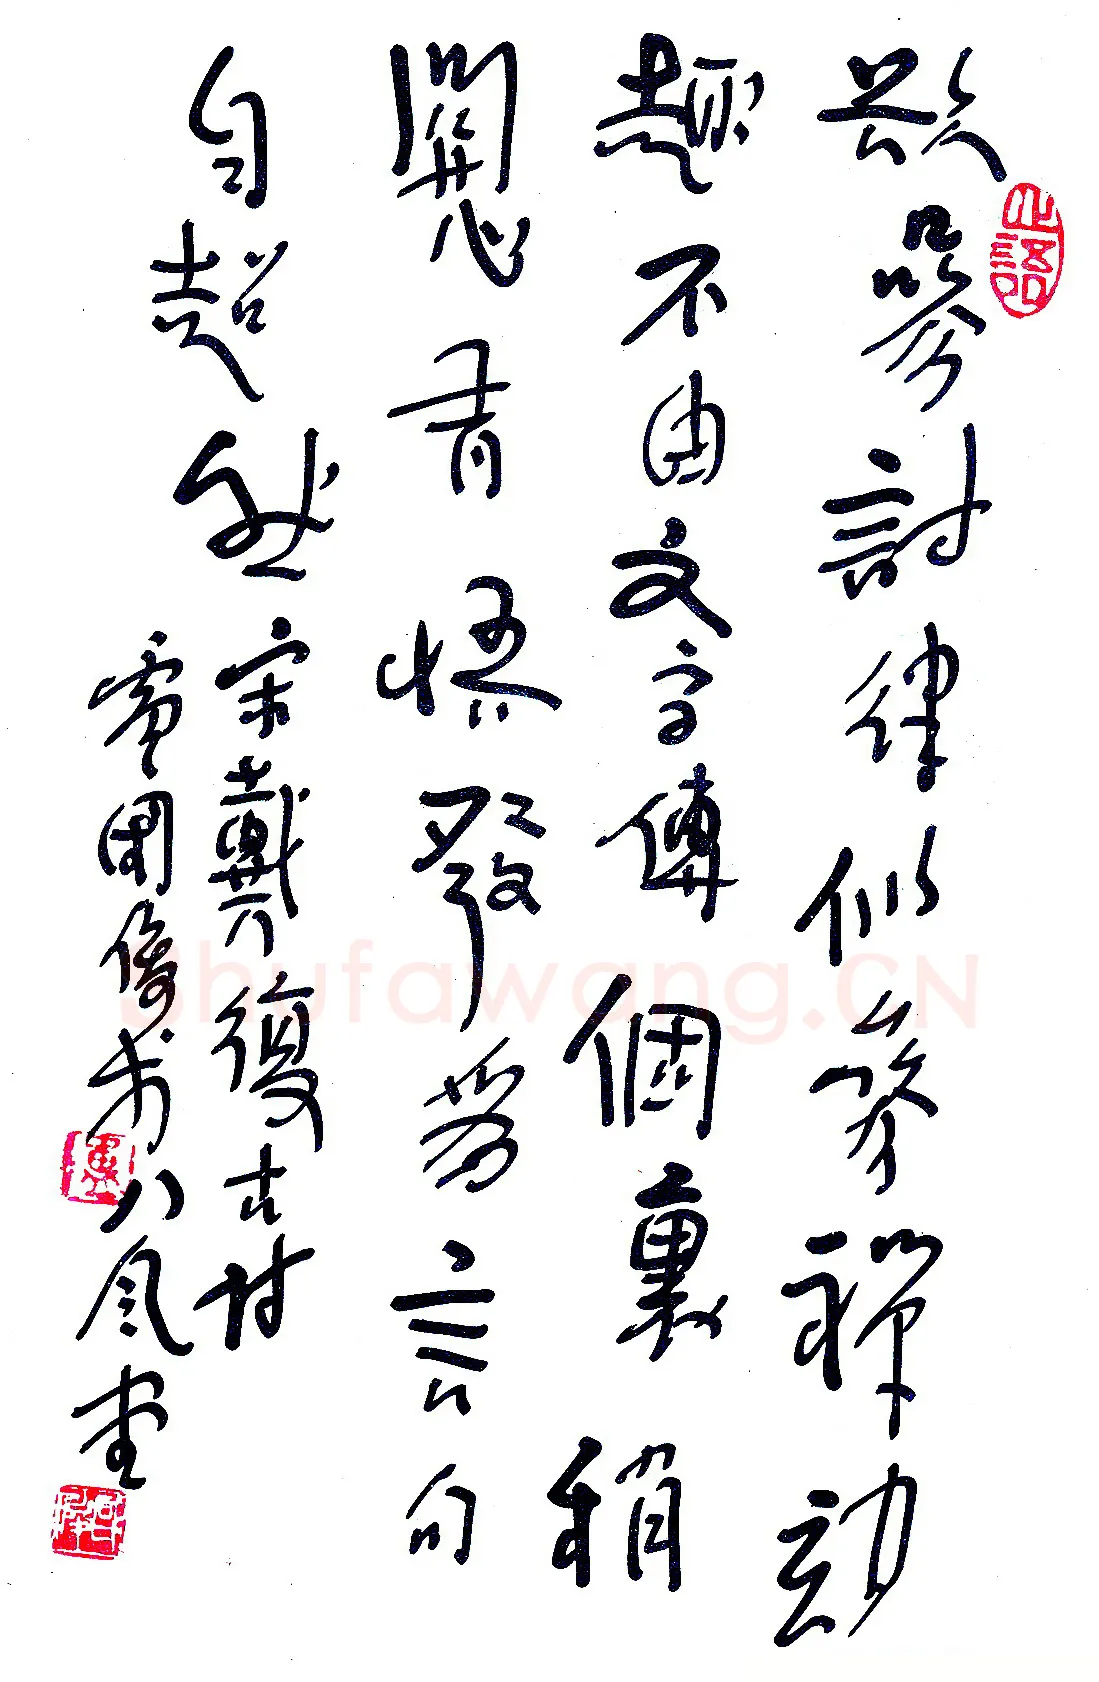 欲參詩律似參禪玅
趣不由文字傳個裏稍
關心有悟發為言句
自超然 宋戴復古詩
書八風堂
Shufawang.CN